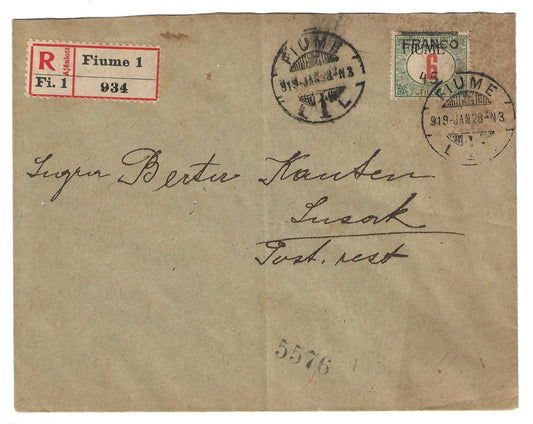 R Ajánlott Fiume 1
Fi. 1 934
FIUME
919-JAN.28-N3
1
FRANCO
FIUME
6
45
FIUME
919-JAN28-N3
Kauten
Susak
Post. rest
5576